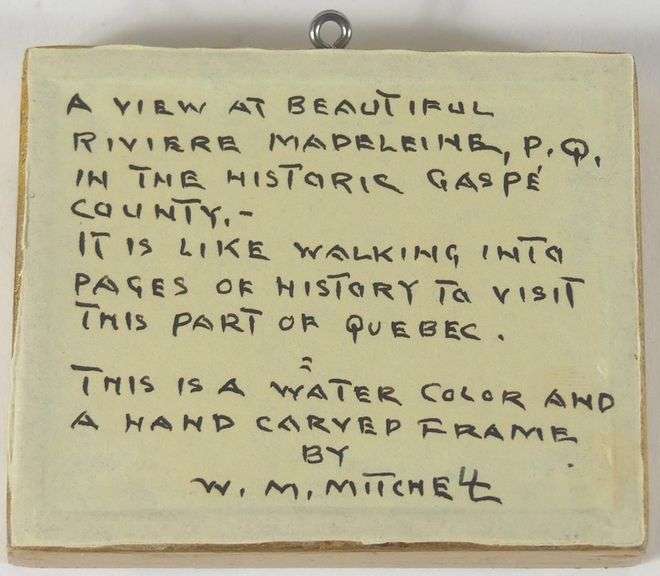 A VIEW AT BEAUTIFUL
RIVIERE MADELEINE, P.Q.
IN THE HISTORIC GASPÉ
COUNTY,-
IT IS LIKE WALKING INTO
PAGES OF HISTORY TO VISIT
THIS PART OF QUEBEC.
THIS IS A WATER COLOR AND
A HAND CARVED FRAME
BY
W. M. MITCHELL